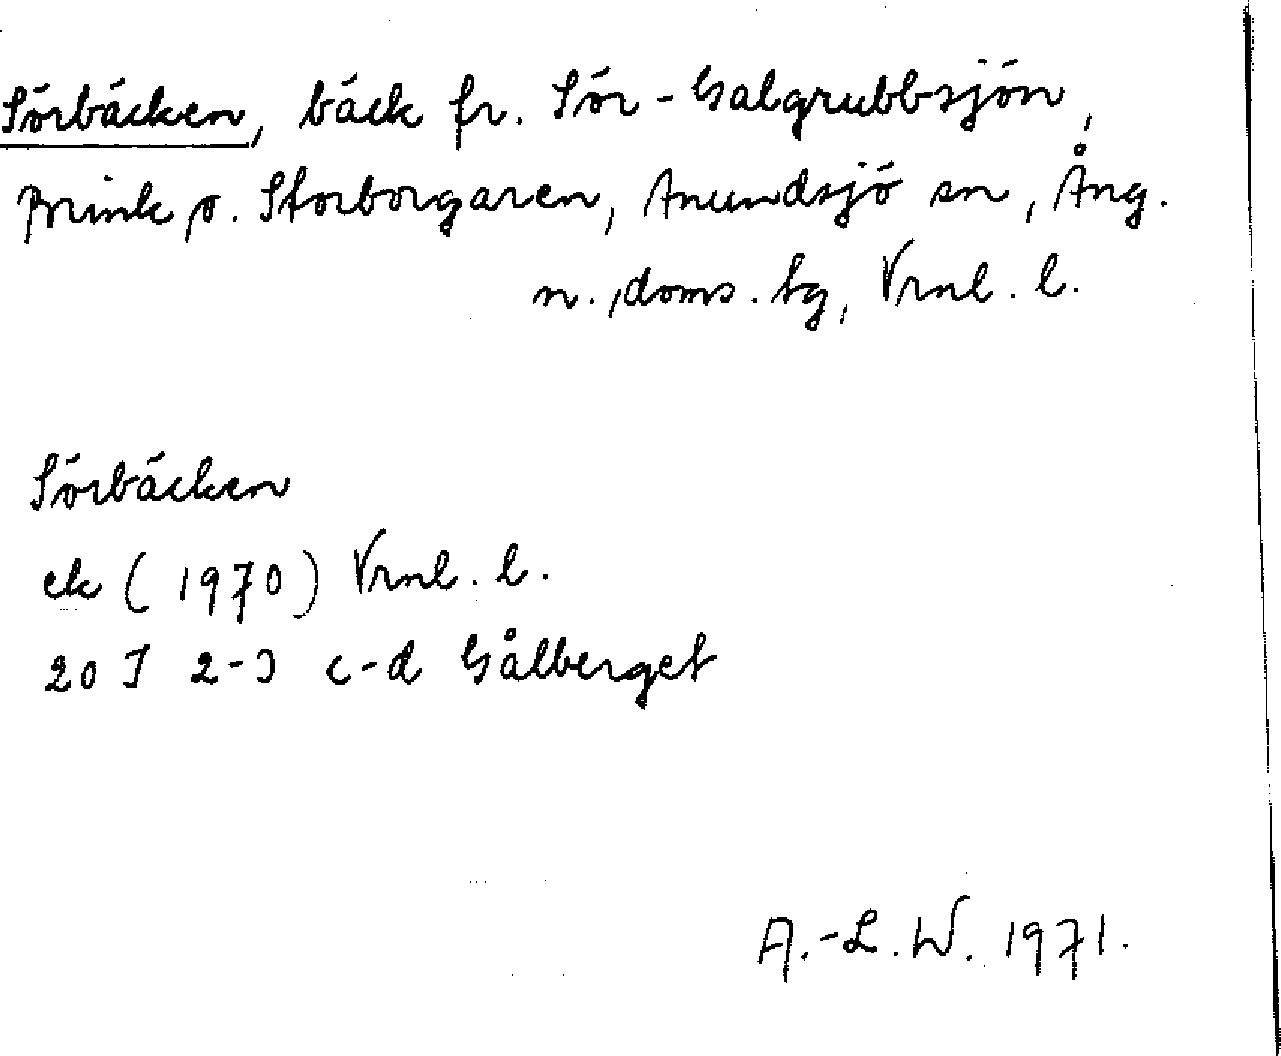 Sörbäcken, bäck fr. Sör-Galgrubbsjön,
o. Storborgaren, Anundsjö sn, Ång.
n. doms. sg, Vrnl. l.
Sörbäcken
ek (1970) Vrnl. l.
20 I 2-3 c-d Gålberget
A.-L.W. 1971.